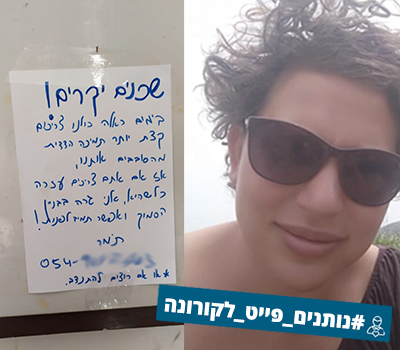 שכנים יקרים!
בימים כאלה כולנו צריכים
קצת יותר תמיכה הדדית
מהסובבים אותנו,
אז אם אתם צריכים עזרה
כלשהיא, אני גרה בבניין
הסמוך ואפשר תמיד לפנות!
תמר
054-
* או אם רוצים להתנדב.
#נותנים_פייט_לקורונה